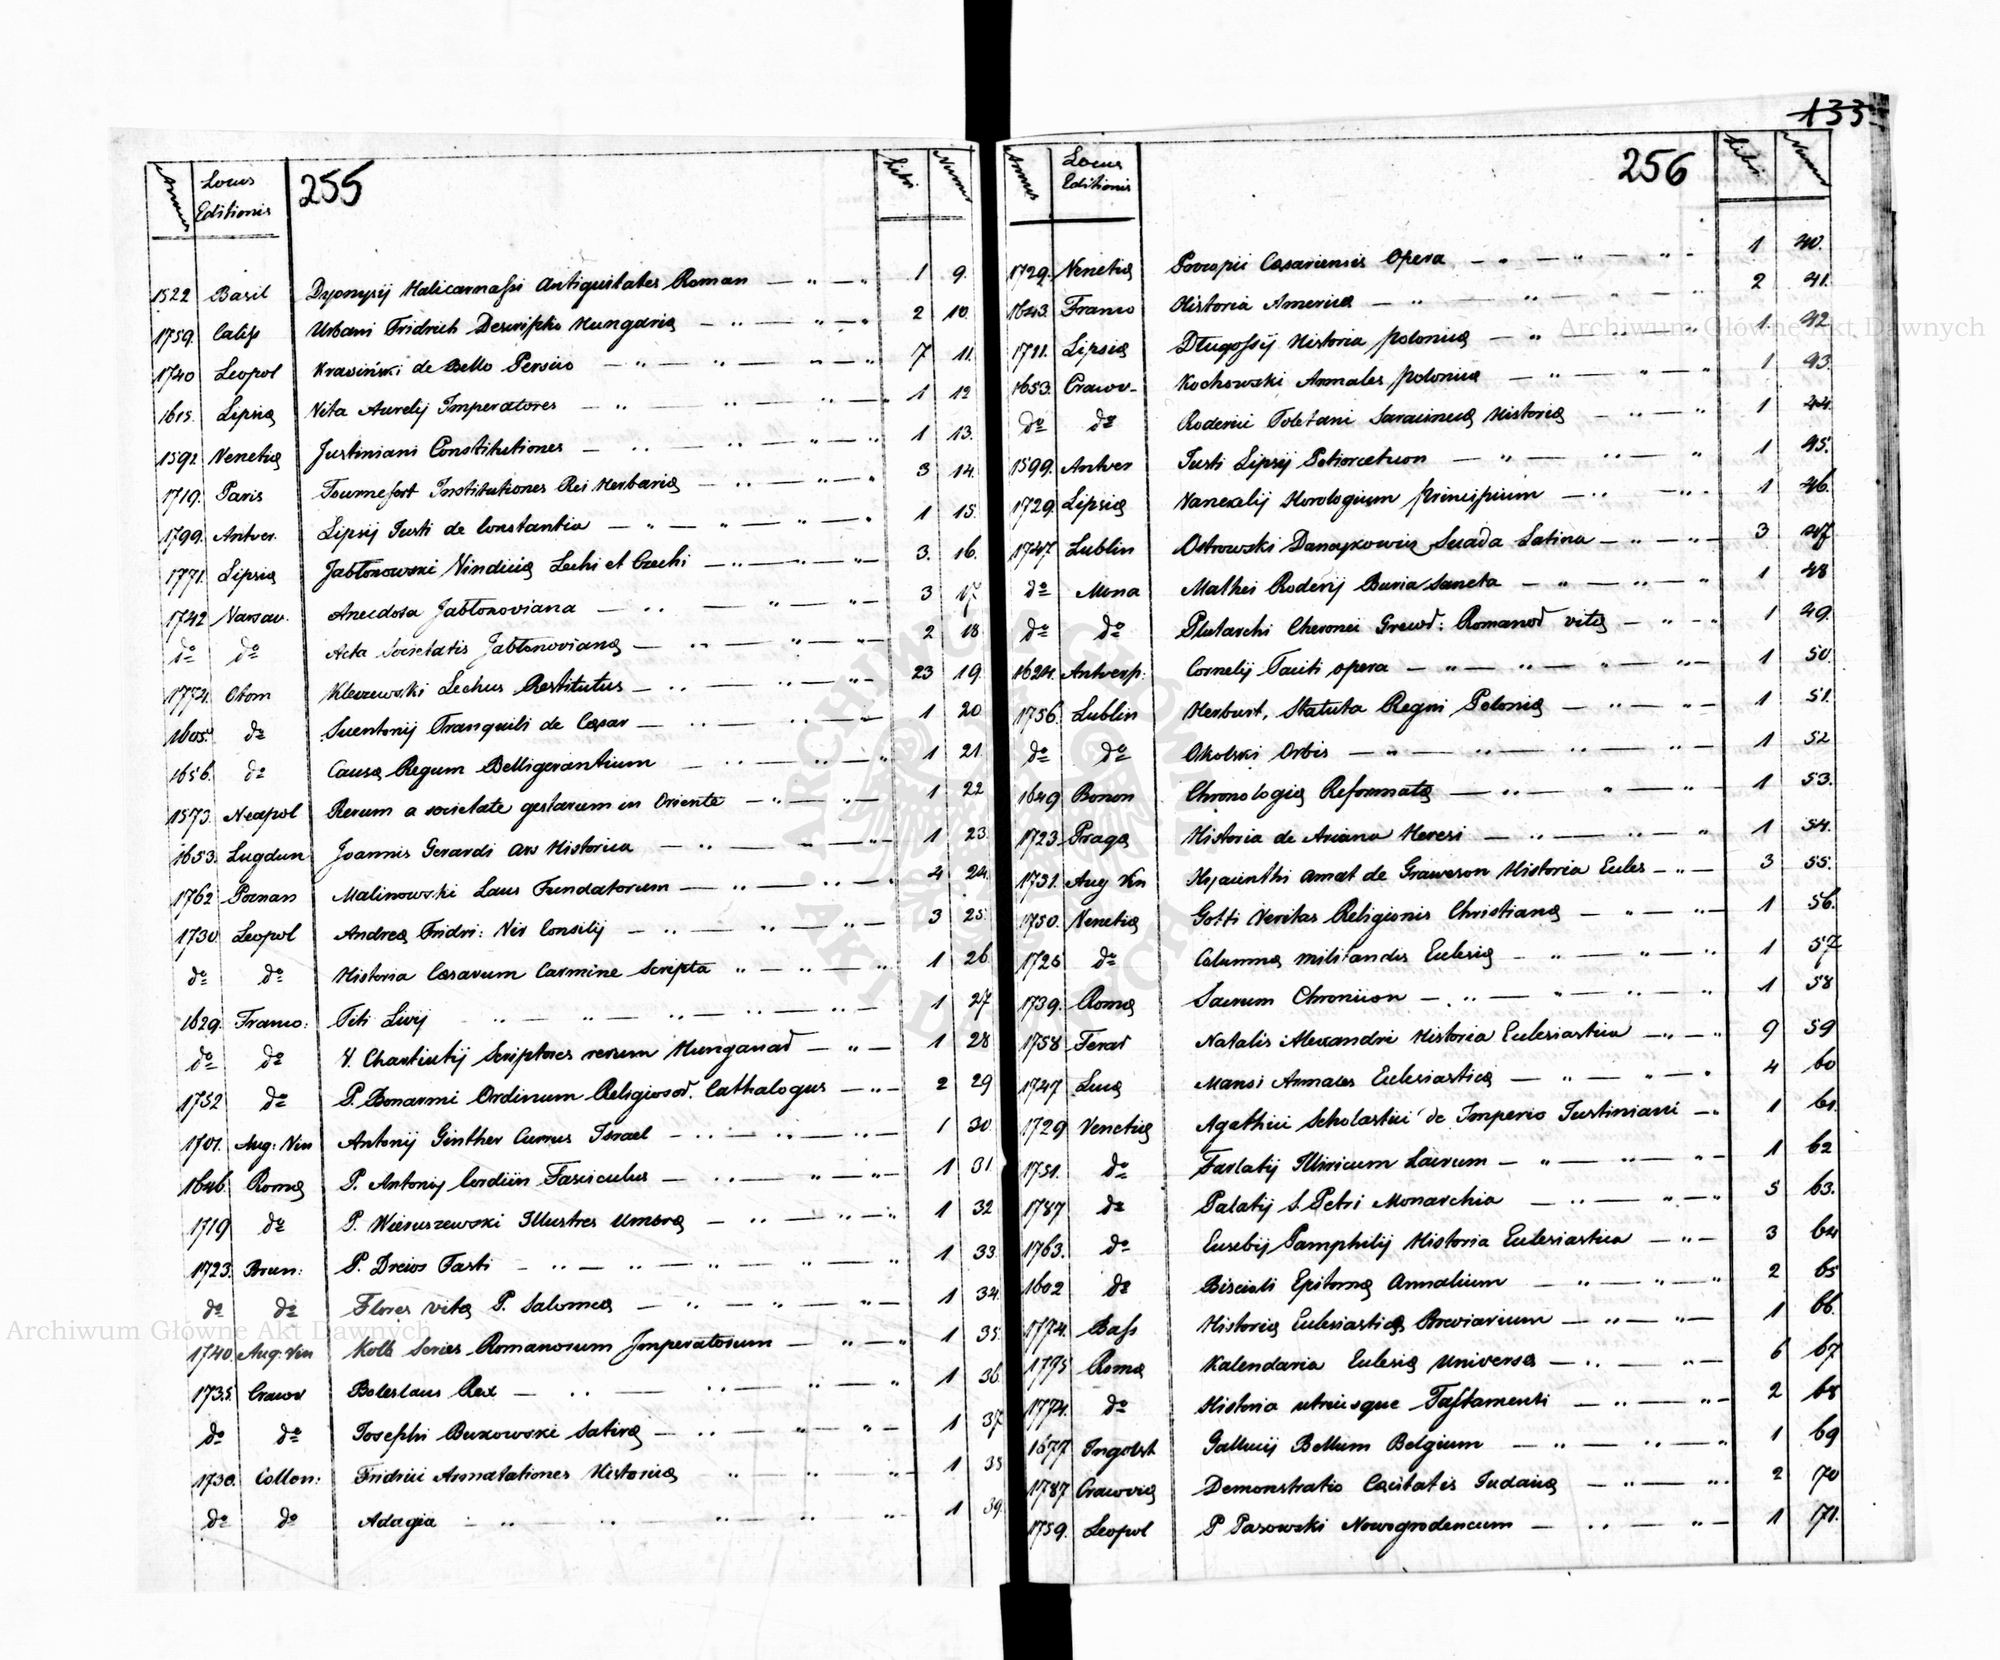 133
Annus Locus Editionis 255 Libri Numer
1522 Basil Dyonysij Halicarnassi Antiquitates Roman 1 9
1759. Calis Urbani Fridrich Descriptio Hungariæ 2 10
1740 Leopol Krasiński de Bello Persico 7 11.
1615. Lipsiæ Vita Aurelij Imperatores 1 12
1592 Venetiæ Justiniani Constitutiones 1 13.
1719. Paris Tournefort Institutiones Rei Herbariæ 3 14.
1799. Antver. Lipsij Justi de Constantia 1 15.
1771. Lipsiæ Jabłonowski Vindiciæ Lechi et Czechi 3. 16.
1742 Varsav. Anecdota Jabłonoviana 3 17
do do Acta Societatis Jabłonovianæ 2 18
1774. Otom Kleczewski Lechus Restitutus 23 19
1605. do Suentonij Tranquili de Cæsar 1 20
1656. do Causæ Regum Belligerantium 1 21.
1573. Neapol Rerum a societate gestarum in Oriente 1 22
1653. Lugdun Joannis Gerardi Ars Historica 1 23.
1762 Poznan Malinowski Laus Fundatorum 4 24.
1730 Leopol Andreæ Fridri: Vir Consilij 3 25.
do do Historia Cæsarum Carmine Scripta 1 26
1629. Franco: Titi Livij 1 27
do do Scriptores rerum Hungarad 1 28
1752 do P. Bonarmi Ordinum Religiosod. Cathalogus 2 29
1701. Aug: Vin Antonij Ginther Currus Israel 1 30
1646. Romæ P. Antonij Cordiin Fasciculus 1 31.
1719 do P. Wieruszewski Illustres Umbræ 1 32
1723. Brun: P. Drews Fasti 1 33
do do Flores vitæ P. Salomea 1 34.
1740 Aug: Vin Kolb Series Romanorum Imperatorum 1 35.
1735. Cracov Boleslaus Rex 1 36
do do Josephi Bukowski Satiræ 1 37.
1730. Collon: Fridrici Annatationes Historicæ 1 38
do do Adagia 1 39.
Annus Locus Editionis 256 Libri Numer
1729. Venetiæ Procopii Cæsariensis Opera 1 40.
1643. Franco Historia Americæ 2 41.
1711. Lipsiæ Długossij Historia polonicæ 1 42
1653. Cracov. Kochowski Annales polonicæ 1 43.
do do Roderici Toletani Saracinicæ Historiæ 1 44.
1599. Antver Justi Lipsij Poliorceticon 1 45.
1729. Lipsiæ Horologium principium 1 46.
1747 Lublin Ostrowski Danaykowicz Suada Latina 3 47.
do Mona Mathei Roderij Baria Sancta 1 48
do do Plutarchi Cheronei Græcod: Romanod vitæ 1 49.
1624. Antverp: Cornelij Taciti opera 1 50
1756. Lublin Herburt, Statuta Regni Poloniæ 1 51.
do do Okolski Orbis 1 52
1649 Bonon Chronologiæ Reformatæ 1 53.
1723 Pragæ Historia de Ariana Heresi 1 54.
1731. Aug Vin Hyacinthi amat de Graweson Historia Eccles 3 55.
1750. Venetiæ Gotti Veritas Religionis Christianæ 1 56.
1725 do Columnæ militandis Eclesiæ 1 57
1739. Romæ Sacrum Chronicon 1 58
1758 Ferar Natalis Alexandri Historia Eclesiastica 9 59
1747 Lucæ Mansi Annales Eclesiasticæ 4 60
1729 Venetiæ Agathici Scholastici de Imperio Justiniani 1 61.
1751. do Farlatij Illiricum Sacrum 1 62
1787 do Palatij S. Petri Monarchia 5 63.
1763. do Eusebij Pamphilij Historia Eclesiastica 3 64
1602 do Biscioli Epitomæ Annalium 2 65
1774. Bass Historiæ Eclesiasticæ Breviarium 1 66.
1775 Romæ Kalendaria Eclesiæ Universæ 6 67
1774. do Historia utriusque Tastamenti 2 68
1677 Ingolst Gallucij Bellum Belgium 1 69
1787 Cracoviæ Demonstratio Cæcitatis Judaicæ 2 70
1759. Leopol P Parowski Nowogrodencum 1 71.
Archiwum Główne Akt Dawnych
Archiwum Główne Akt Dawnych